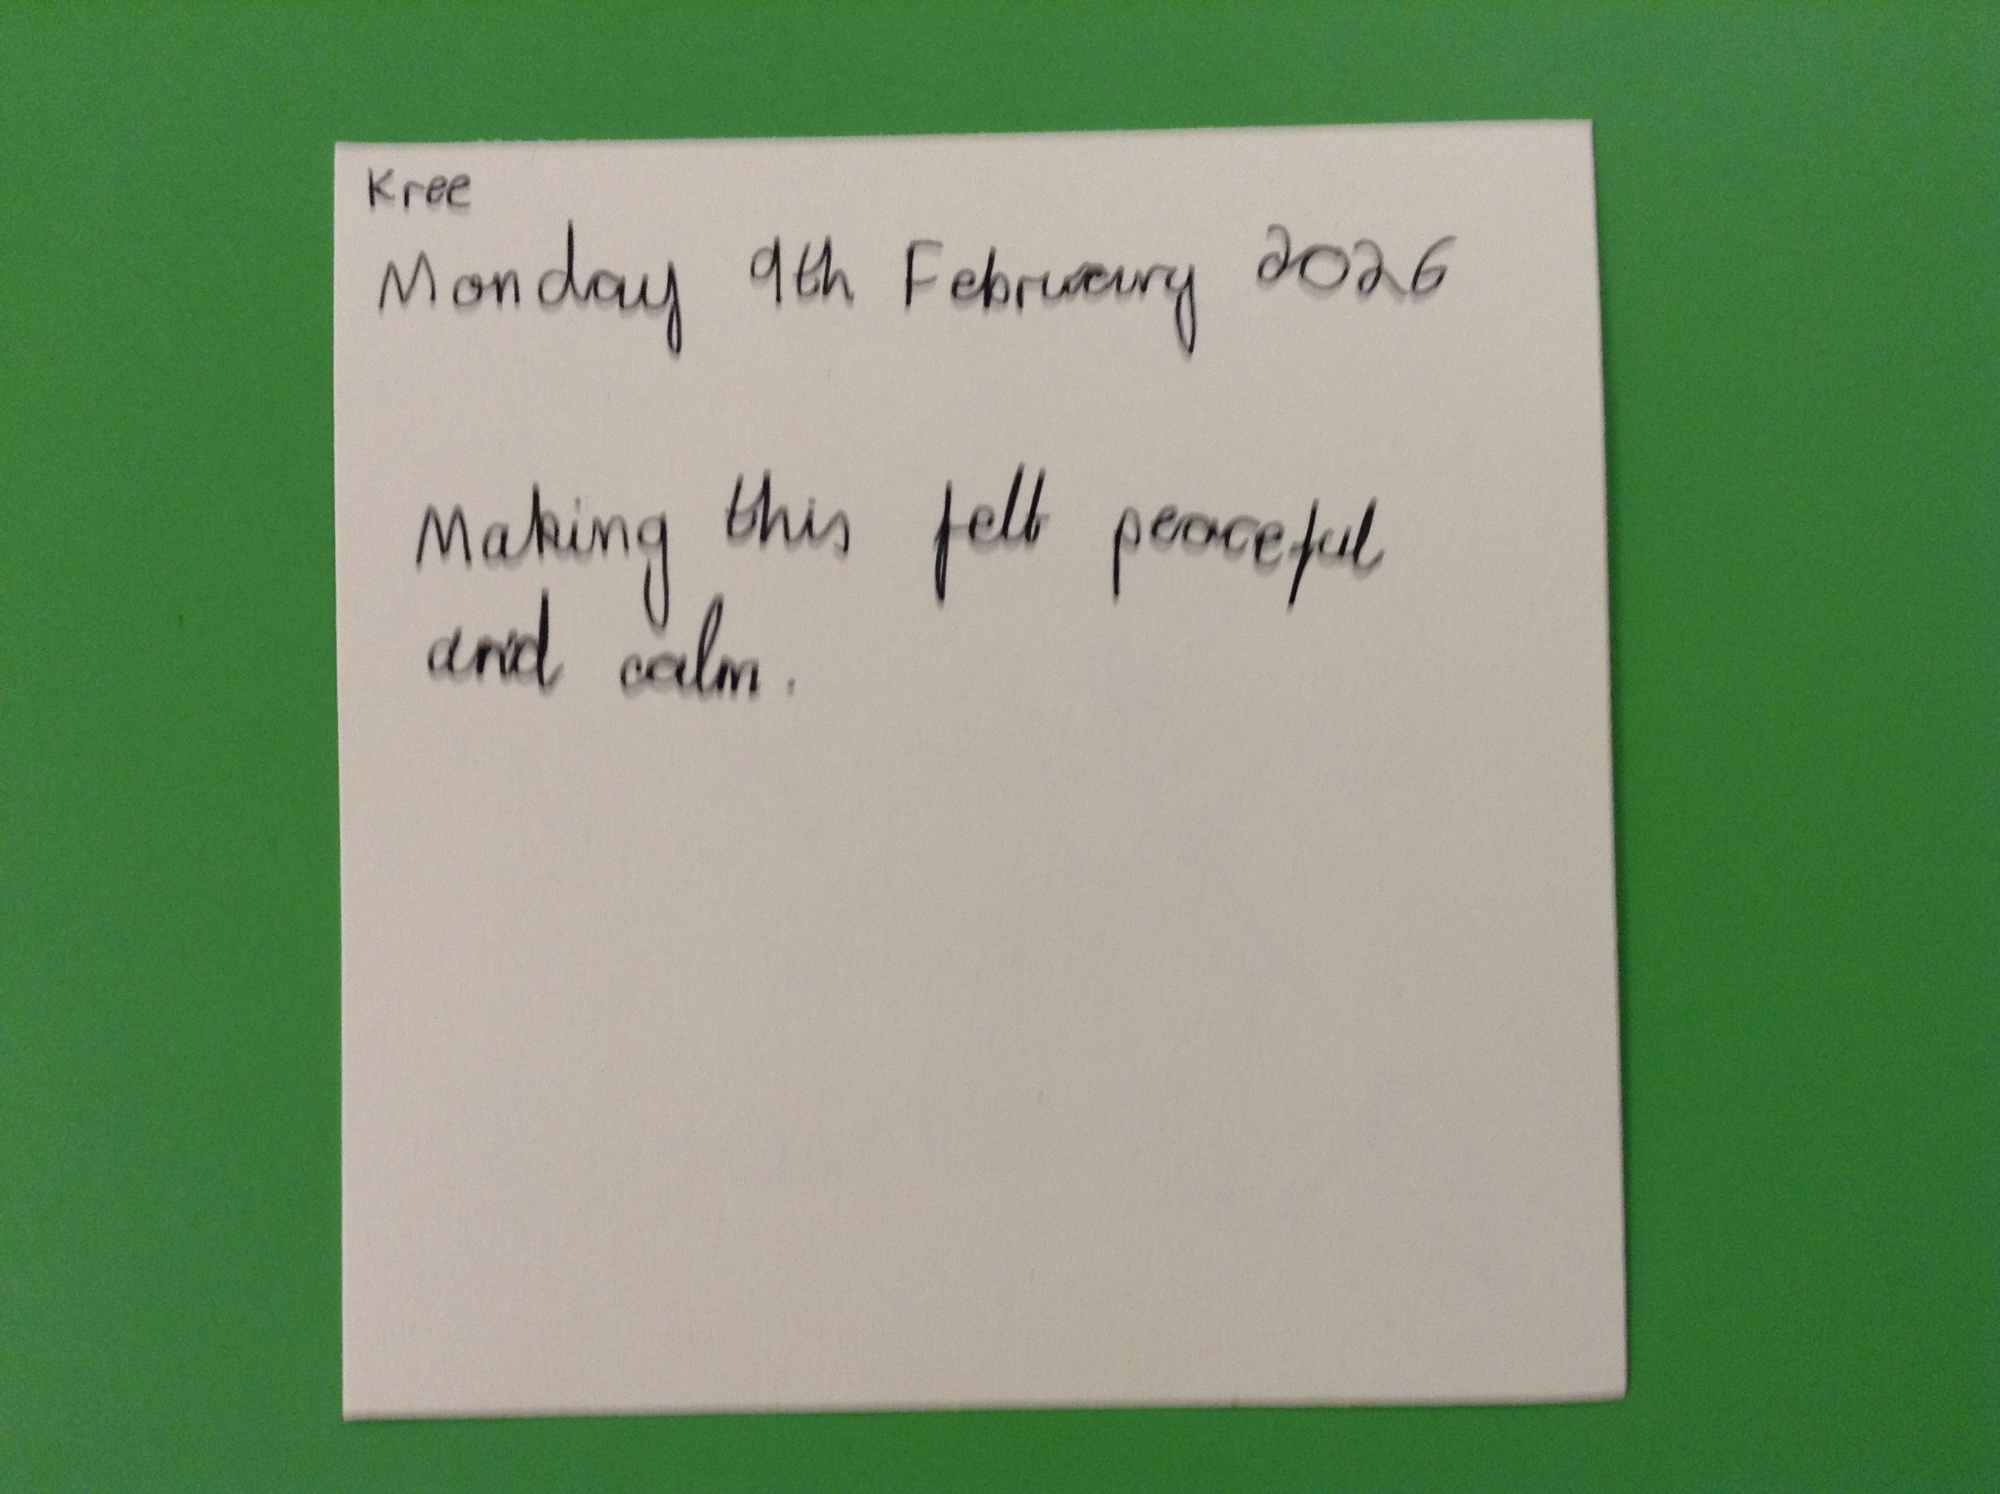 Kree
Monday 9th February 2026
Making this felt peaceful
and calm.